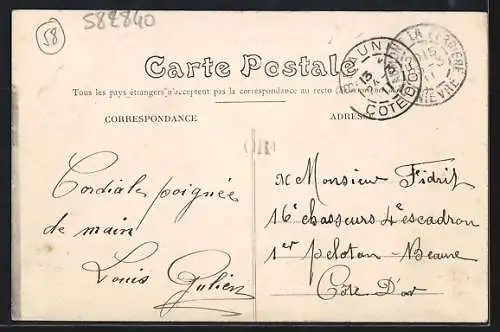 58
582840
Carte Postale
Tous les pays étrangers n'acceptent pas la correspondance au recto
CORRESPONDANCE
ADRESSE
BEAUNE
COTE D'OR
13
NIEVRE
OR
Cordiale poignée
de main
Louis Julien
Monsieur Fidrit
16e chasseurs 4e escadron
1er peloton - Beaune
Côte D'or